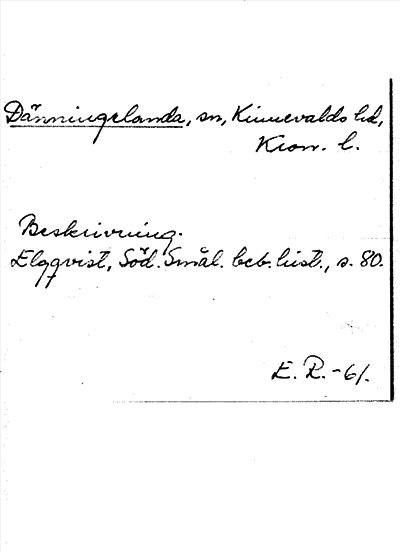 Dänningelanda, sn, Kinnevalds hd,
Kron. l.
Beskrivning.
Elgqvist, Söd. Smål. beb. hist., s. 80.
E. R. -61.